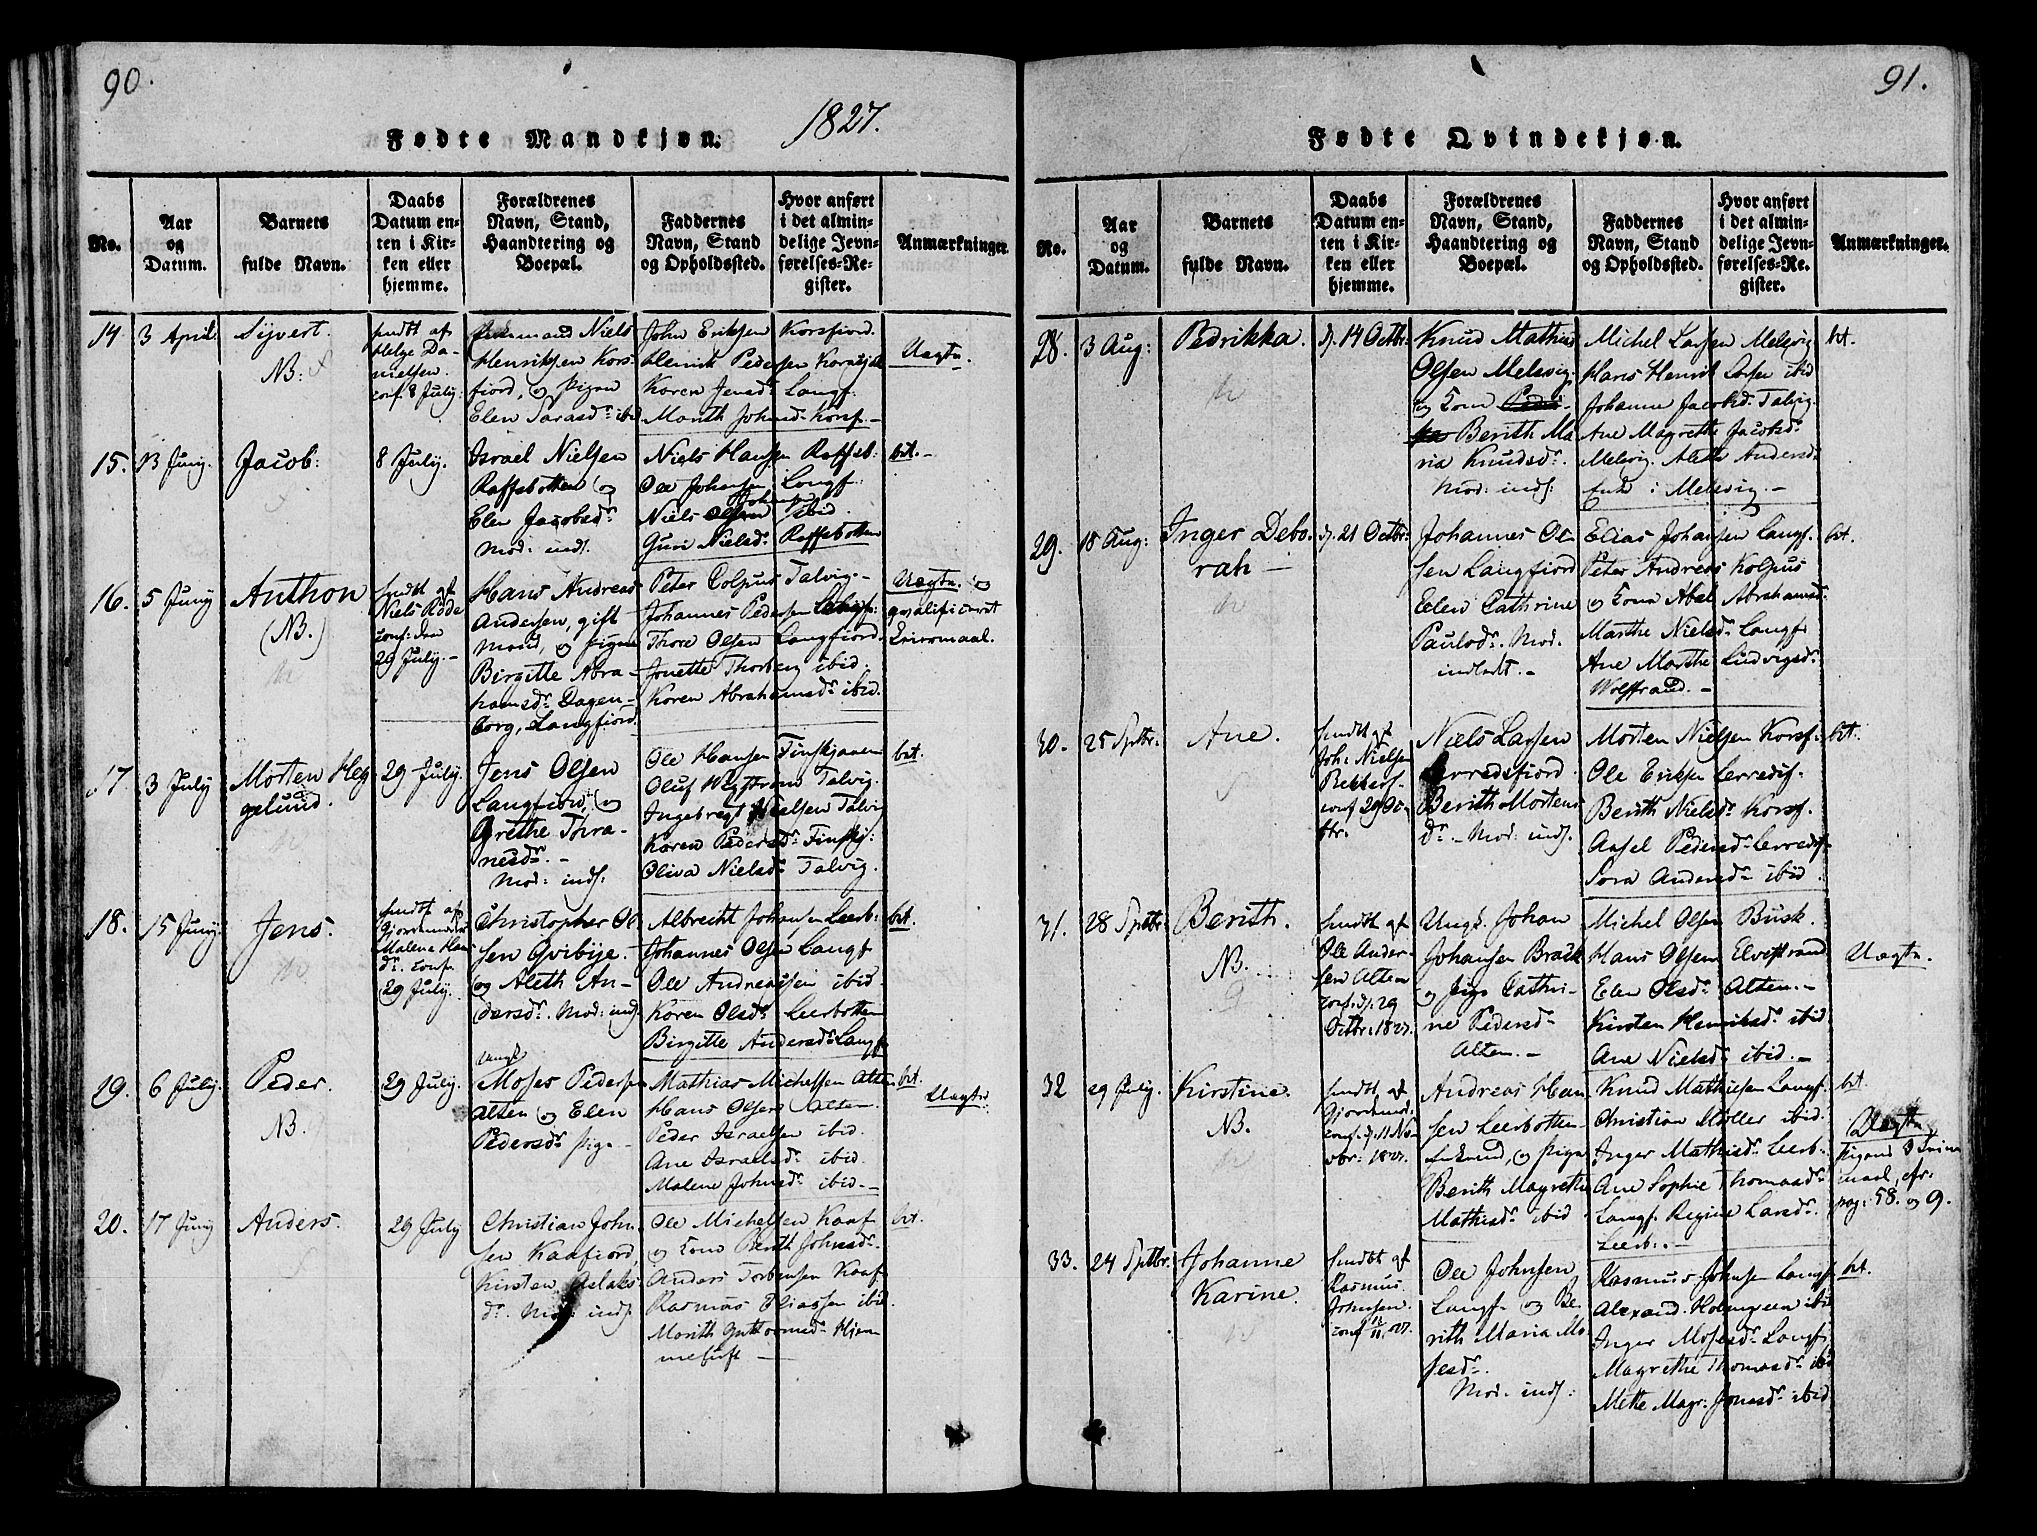 90.
1827.
Fødte Mandkjøn.
No.
Aar
og
Datum.
Barnets
fulde Navn.
Daabs
Datum en-
ten i Kir-
ken eller
hjemme.
Forældrenes
Navn, Stand,
Haandtering og
Boepæl.
Faddernes
Navn, Stand
og Opholdssted.
Hvor anført
i det almin-
delige Jevn-
førelses-Re-
gister.
Anmærkninger.
14
3 April
Sijvert.
NB:
hmdt af
Helge Da-
nielsen.
conf. 8 July.
Niels
Henriksen Kors-
fiord, og Pigen
Elen Sarasdr ibid
John Eriksen Korsfiord.
Henrik Pedersen
Karen Jensdr Langf.
Marith Johnsdr Korsf.
Uægte.
15.
13 Juny.
Jacob:
8 July.
Israel Nielsen
Raffsbotten og
Elen Jacobsdr
Mod: indl.
Niels Hansen Raffsb:
Ole Johnsen Langf.
Johnsen
Niels Olsen ibid.
Guri Nielsdr Raffsbotten
bet.
16.
5 Juny
Anthon
(NB.)
hmdt af
Niels Rode
conf: den
29 July.
Hans Andreas
Andersen, gift
Mand, og Pigen
Birgitte Abra-
hamsdr
Langfiord.
Peter Colpus Talvig.
Johannes Pedersen
Thore Olsen Langfiord.
Jonette ibid.
Karen Abrahamsdr ibid.
Uægte. og
qvalificeret
Leiermaal.
17
3 July
Morten Heg
gelund.
29 July.
Jens Olsen
Langfiord, og
Grethe Thra-
nesdr.
Mod: indl:
Ole Hansen
Oluf Talvig.
Ingebregt Nielsen Talvig
Karen Pedersdr
Oliva Nielsdr Talvig.
bet.
18.
15 Juny
Jens.
hmdt af
Malene Hans
dr. conf.
29 July.
Christopher Ol
sen Qvibye.
og Aleth An-
dersdr. Mod: indl.
Albrecht Johansen Leerb:
Johannes Olsen Langf.
Ole Andreassen ibid.
Karen Olsdr Leerbotten
Birgitte Andersdr Langf.
bet.
19.
6 July.
Peder.
NB.
29 July.
Ungk.
Moses Peders.
Alten og Elen
Pedersdr Pige
Mathias Michelsen Alten
Hans Olsen Alten.
Peder Israelsen ibid.
Ane Israelsdr ibid.
Malene Johnsdr ibid.
bet.
Uægte.
20.
17 Juny
Anders.
29 July
Christian John
sen Kaafiord,
Kirsten Aslaks
dr. Mod: indl.
Ole Michelsen Kaaf
og Kone Berith Johnsdr.
Anders Torbensen Kaaf
Rasmus Eliassen ibid
Marith Guttormsdr Hjem
meluft
bet.
91.
Fødte Qvindekjøn.
No.
Aar
og
Datum.
Barnets
fulde Navn.
Daabs
Datum en-
ten i Kir-
ken eller
hjemme.
Forældrenes
Navn, Stand,
Haandtering og
Boepæl.
Faddernes
Navn, Stand
og Opholdssted.
Hvor anført
i det almin-
delige Jevn-
førelses-Re-
gister.
Anmærkninger.
28.
3 Aug:
Pedrikka.
d. 14 Octbr.
Knud Mathias
Olsen Melsvig.
og Kone
Berith Ma
ria Knudsdr.
Mod: indl:
Michel Larsen Melsvig
Hans Henrik Larsen ibid
Johanne Jacobsd. Talvig.
Ane Magrethe Jacobsdr
Melsvig. Aleth Andersdr
Enke i Melsvig.
bet.
29.
18 Aug:
Inger Debo-
rah
d. 21 Octbr:
Johannes Ol
sen Langfiord
Elen Cathrine
Paulsdr. Mod.
indledt.
Elias Johansen Langf.
Peter Andreas Kolpus
og Kone Abel Abrahamsd.
Marthe Nielsdr Langf.
Ane Marthe Ludvigsdr
bet.
30.
25 Sptbr.
Ane.
hmdt af
Joh: Nielsen
conf 29 Oc-
tbr.
Niels Larsen
Lerredsfiord.
Berith Mortens
dr. Mod: indl.
Morten Nielsen Korsf.
Ole Eriksen Lerredsf.
Berith Nielsdr Korsf.
Aasel Pedersdr Lerredsf
Sara Andersdr ibid.
bet.
31.
28 Sptbr.
Berith.
NB.
hmdt af
Ole Ander-
sen Alten
conf. d. 29
Octbr. 1827.
Ungk. Johan
Johansen
og Pige Cathri-
ne Pedersdr
Alten.
Michel Olsen Busk.
Hans Olsen Elvestrand
Elen Olsdr Alten.
Kirsten Henriksdr ibid
Ane Nielsdr ibid.
Uægte.
32
29 July.
Kirstine.
NB.
hmdt af
Gjordemod.
conf. d. 11 No
vbr: 1827.
Andreas Han
sen Leerbotten
Enkemd, og Pige
Berith Magrethe
Mathisdr ibid.
Knud Mathisen Langf.
Christian Møller ibid.
Inger Mathisdr Leerb
Ane Sophie Thomasdr
Langf. Regine Larsdr.
Leerb.
bet.
Uægte
Pigens 3 Leier
maal, cfr.
pag: 58. og 9.
33.
24 Sptbr.
Johanne
Karine.
hmdt af
Rasmus
Johnsen.
conf 11/11. 27.
Ole Johnsen
Langf. og Be
rith Maria Mo
sesdr.
Mod: indl:
Rasmus Johnsen Langf
Alexand. Holmgreen ibid
Inger Mosesdr Langf
Magrethe Thomasdr ibid
Mette Magr: Jonasdr ibid.
bet.